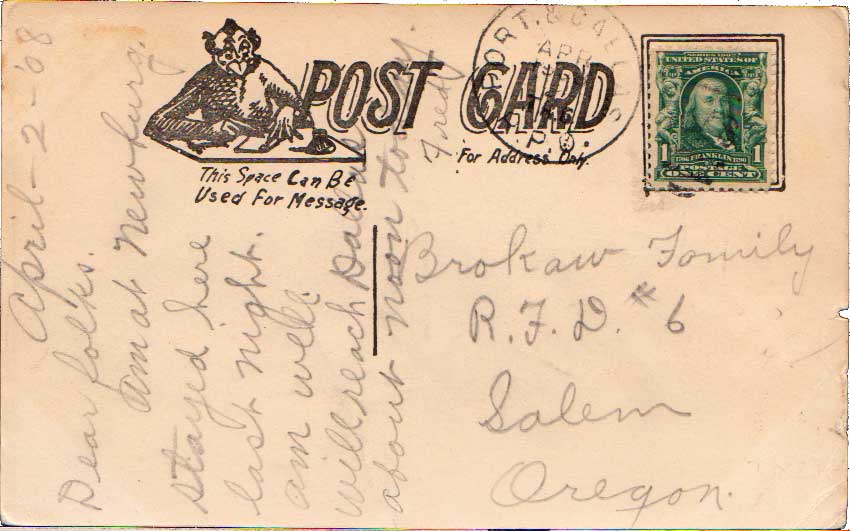 POST CARD
For Address Only.
This Space Can Be
Used For Message.
PORT. & DALLAS
APR
R.P.O.
SERIES 1902
UNITED STATES OF
AMERICA
1 1706 FRANKLIN 1790 1
POSTAGE
ONE CENT
April - 2 - '08
Dear folks.
Am at Newburg.
Stayed here
last night.
am well.
will reach Dallas
about noon to day.
Fred.
Brokaw Family
R.F.D. # 6
Salem
Oregon.